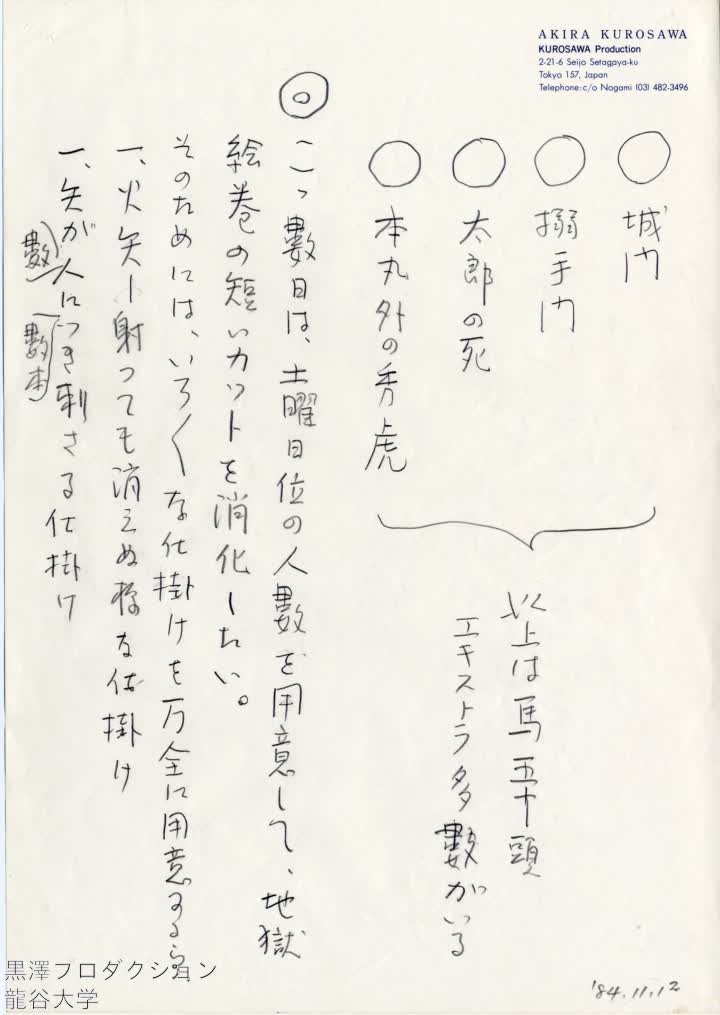 AKIRA KUROSAWA
KUROSAWA Production
2-21-6 Seijo Setagaya-ku
Tokyo 157, Japan
Telephone: c/o Nogami (03) 482-3496
○ 城内
○ 搦手門
○ 太郎の死
○ 本丸外の秀虎
以上は馬五十頭
エキストラ多數がいる
◎ こゝ數日は、土曜日位の人數を用意して、地獄
絵巻の短いカットを消化したい。
そのためには、いろ〱な仕掛けを万全に用意する
一、火矢ー射っても消えぬ様な仕掛け
一、矢が(數)人につき刺さる(數本)仕掛け
'84.11.12
黒澤プロダクション
龍谷大学